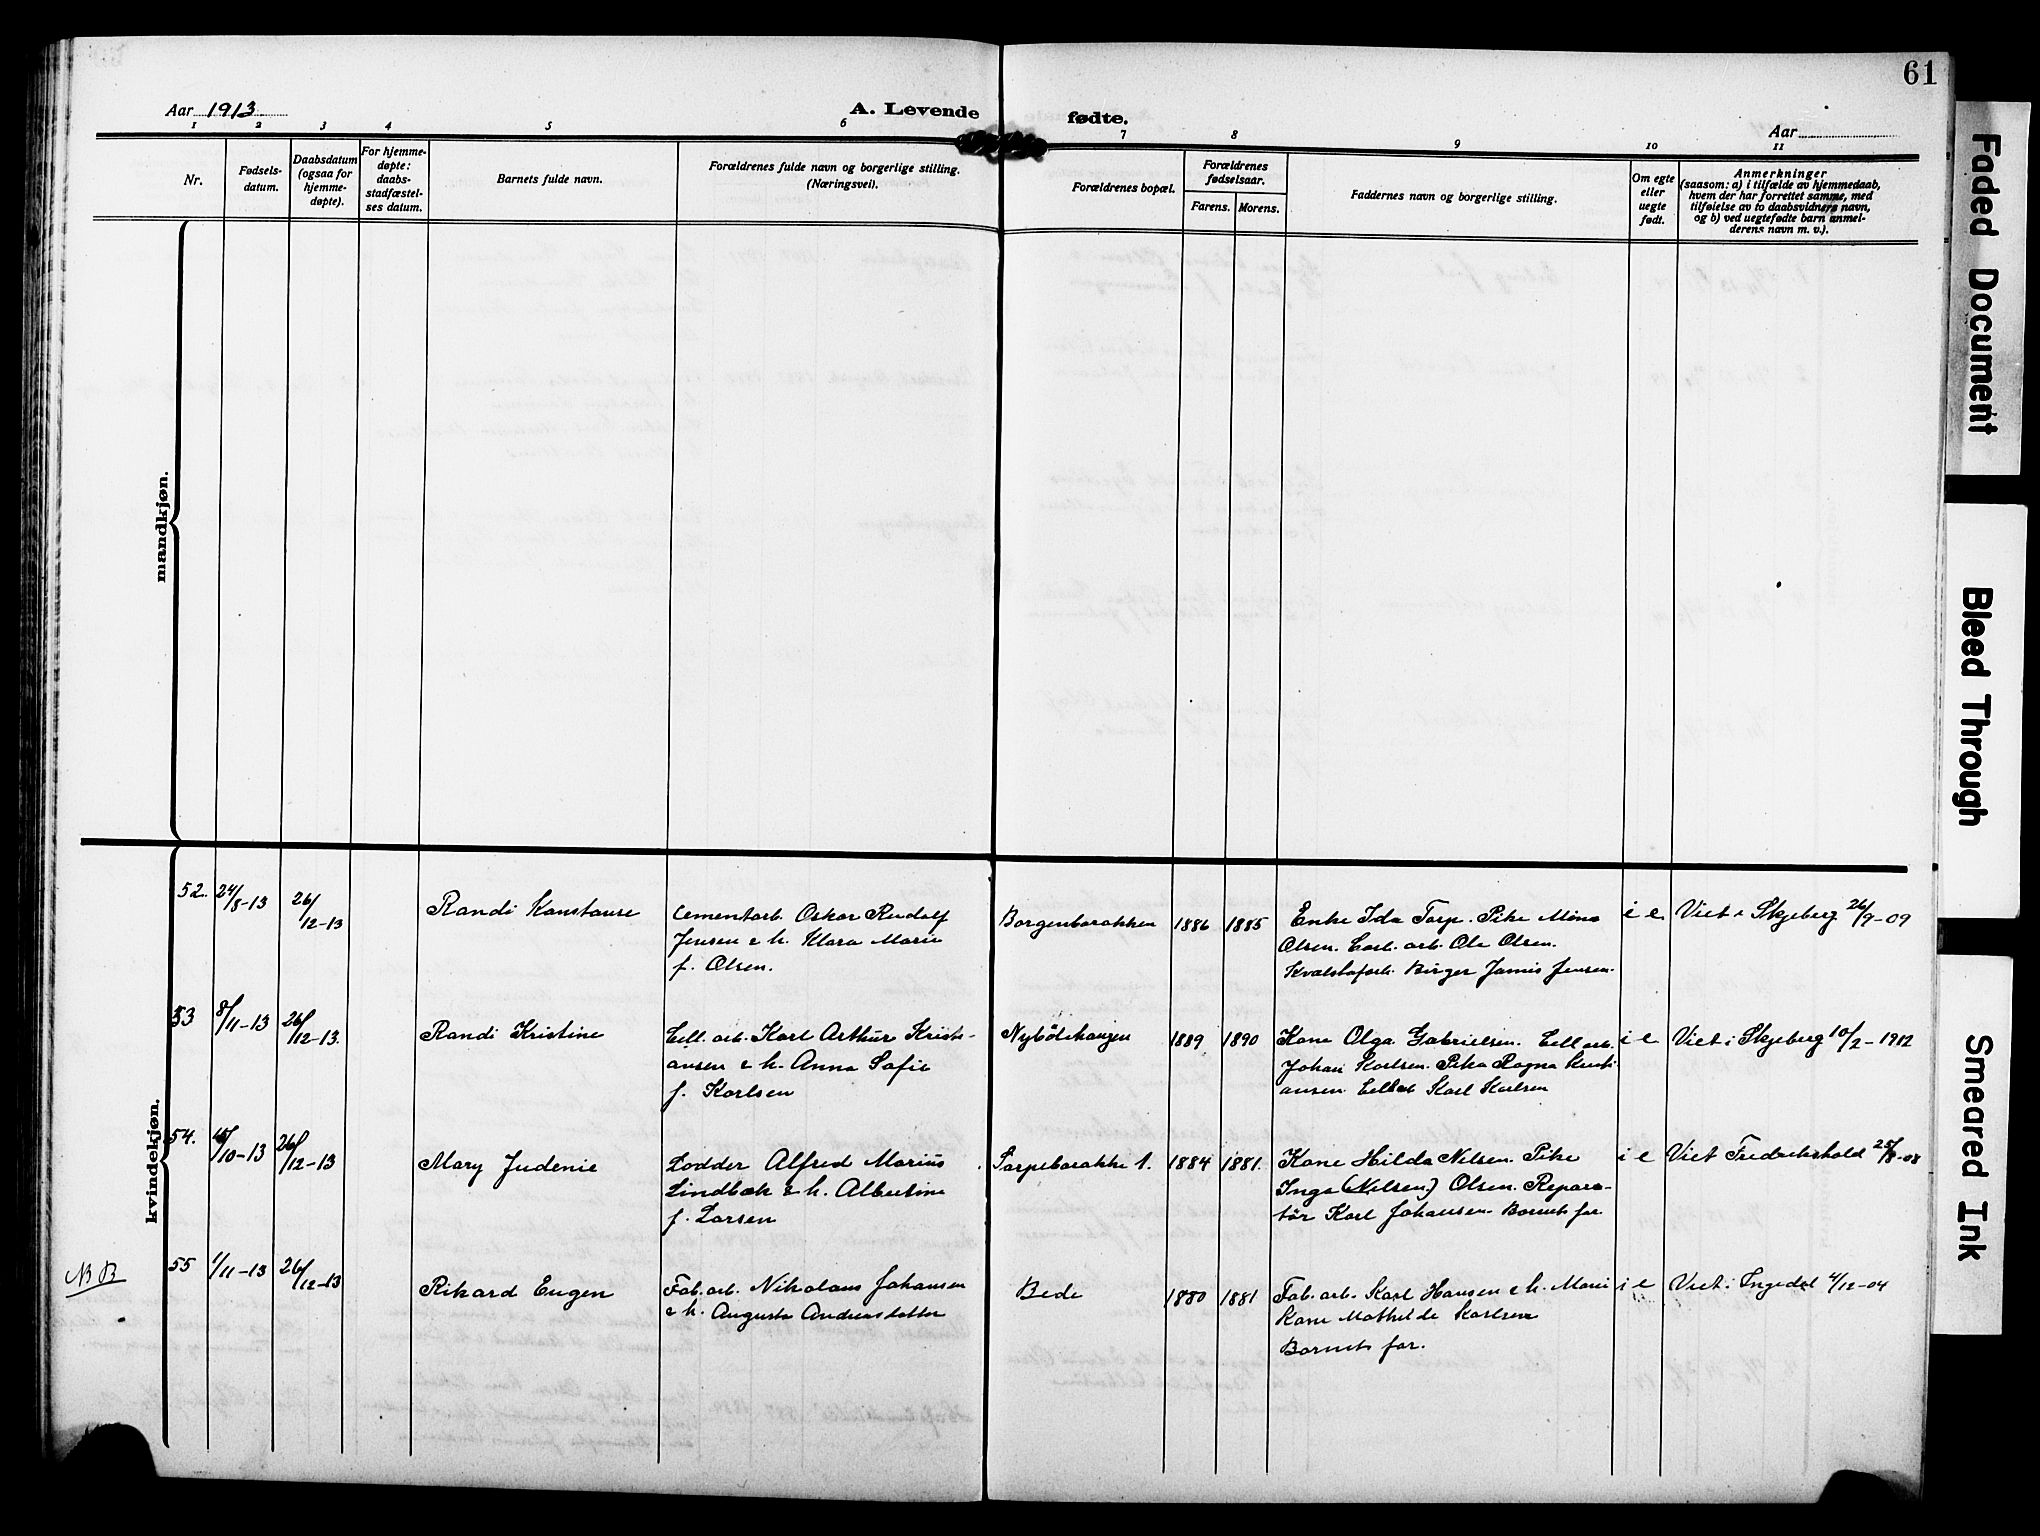 61
Aar 1913.
A. Levende fødte.
Aar
1 2 3 4 5 6 7 8 9 10 11
Nr.
Fødsels-
datum.
Daabsdatum
(ogsaa for
hjemme-
døpte).
For hjemme-
døpte:
daabs-
stadfæstel-
ses datum.
Barnets fulde navn.
Forældrenes fulde navn og borgerlige stilling.
(Næringsvei).
Forældrenes bopæl.
Forældrenes
fødselsaar.
Farens. Morens.
Faddernes navn og borgerlige stilling.
Om egte
eller
uegte
født.
Anmerkninger
(saasom: a) i tilfælde av hjemmedaab,
hvem der har forrettet samme, med
tilføielse av to daabsvidners navn,
og b) ved uegtefødte barn anmel-
derens navn m. v.).
mandkjøn.
kvindekjøn.
52. 24/8-13 26/12-13
Randi Konstanse
Cementarb. Oskar Rudolf
Jensen & h. Klara Marie
f. Olsen.
Borgenbarakken 1886 1885
Enke Ida Torp. Pike Mina
Olsen. arb. Ole Olsen.
Birger Jensen.
i e Viet i Skjeberg 26/9-09
53 8/11-13 26/12-13.
Randi Kristine
Cell. arb. Karl Arthur Kristi-
ansen & h. Anna Sofie
f. Karlsen
1889 1890
Kone Olga Gabrielsen. Cell arb.
Johan Karlsen. Pike Ragna Kristi-
ansen Karl Karlsen
i e Viet i Skjeberg 10/2-1912
54. 15/10-13 26/12-13
Mary Judenie
Lodder Alfred Marius
Lindbæk & h. Albertine
f. Larsen
Torpebarakke 1. 1884 1881.
Kone Hilda Nilsen. Pike
Inga (Nilsen) Olsen. Repara-
tør Karl Johansen. Barnets far
i e Viet Fredrikshald 25/8-08
NB
55 1/11-13 26/12-13
Rikard Eugen
Fab. arb. Nikolaus Johansen
& h. Augusta Andreasdatter
Bede 1880 1881
Fab. arb. Karl Hansen & h. Marie
Kone Mathilde Karlsen
Barnets far.
i e Viet i Ingedal 4/12-04
Faded Document
Bleed Through
Smeared Ink